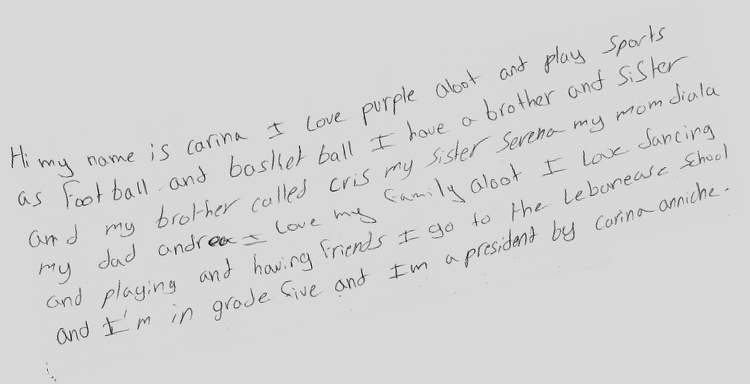 Hi my name is carina I Love purple aloot and play Sports
as football and basket ball I have a brother and SiSter
and my brother called cris my Sister Serena my mom diala
my dad andrea I Love my family aloot I Love dancing
and playing and having friends I go to the Lebanease School
and I'm in grade five and Im a president by carina anniche.